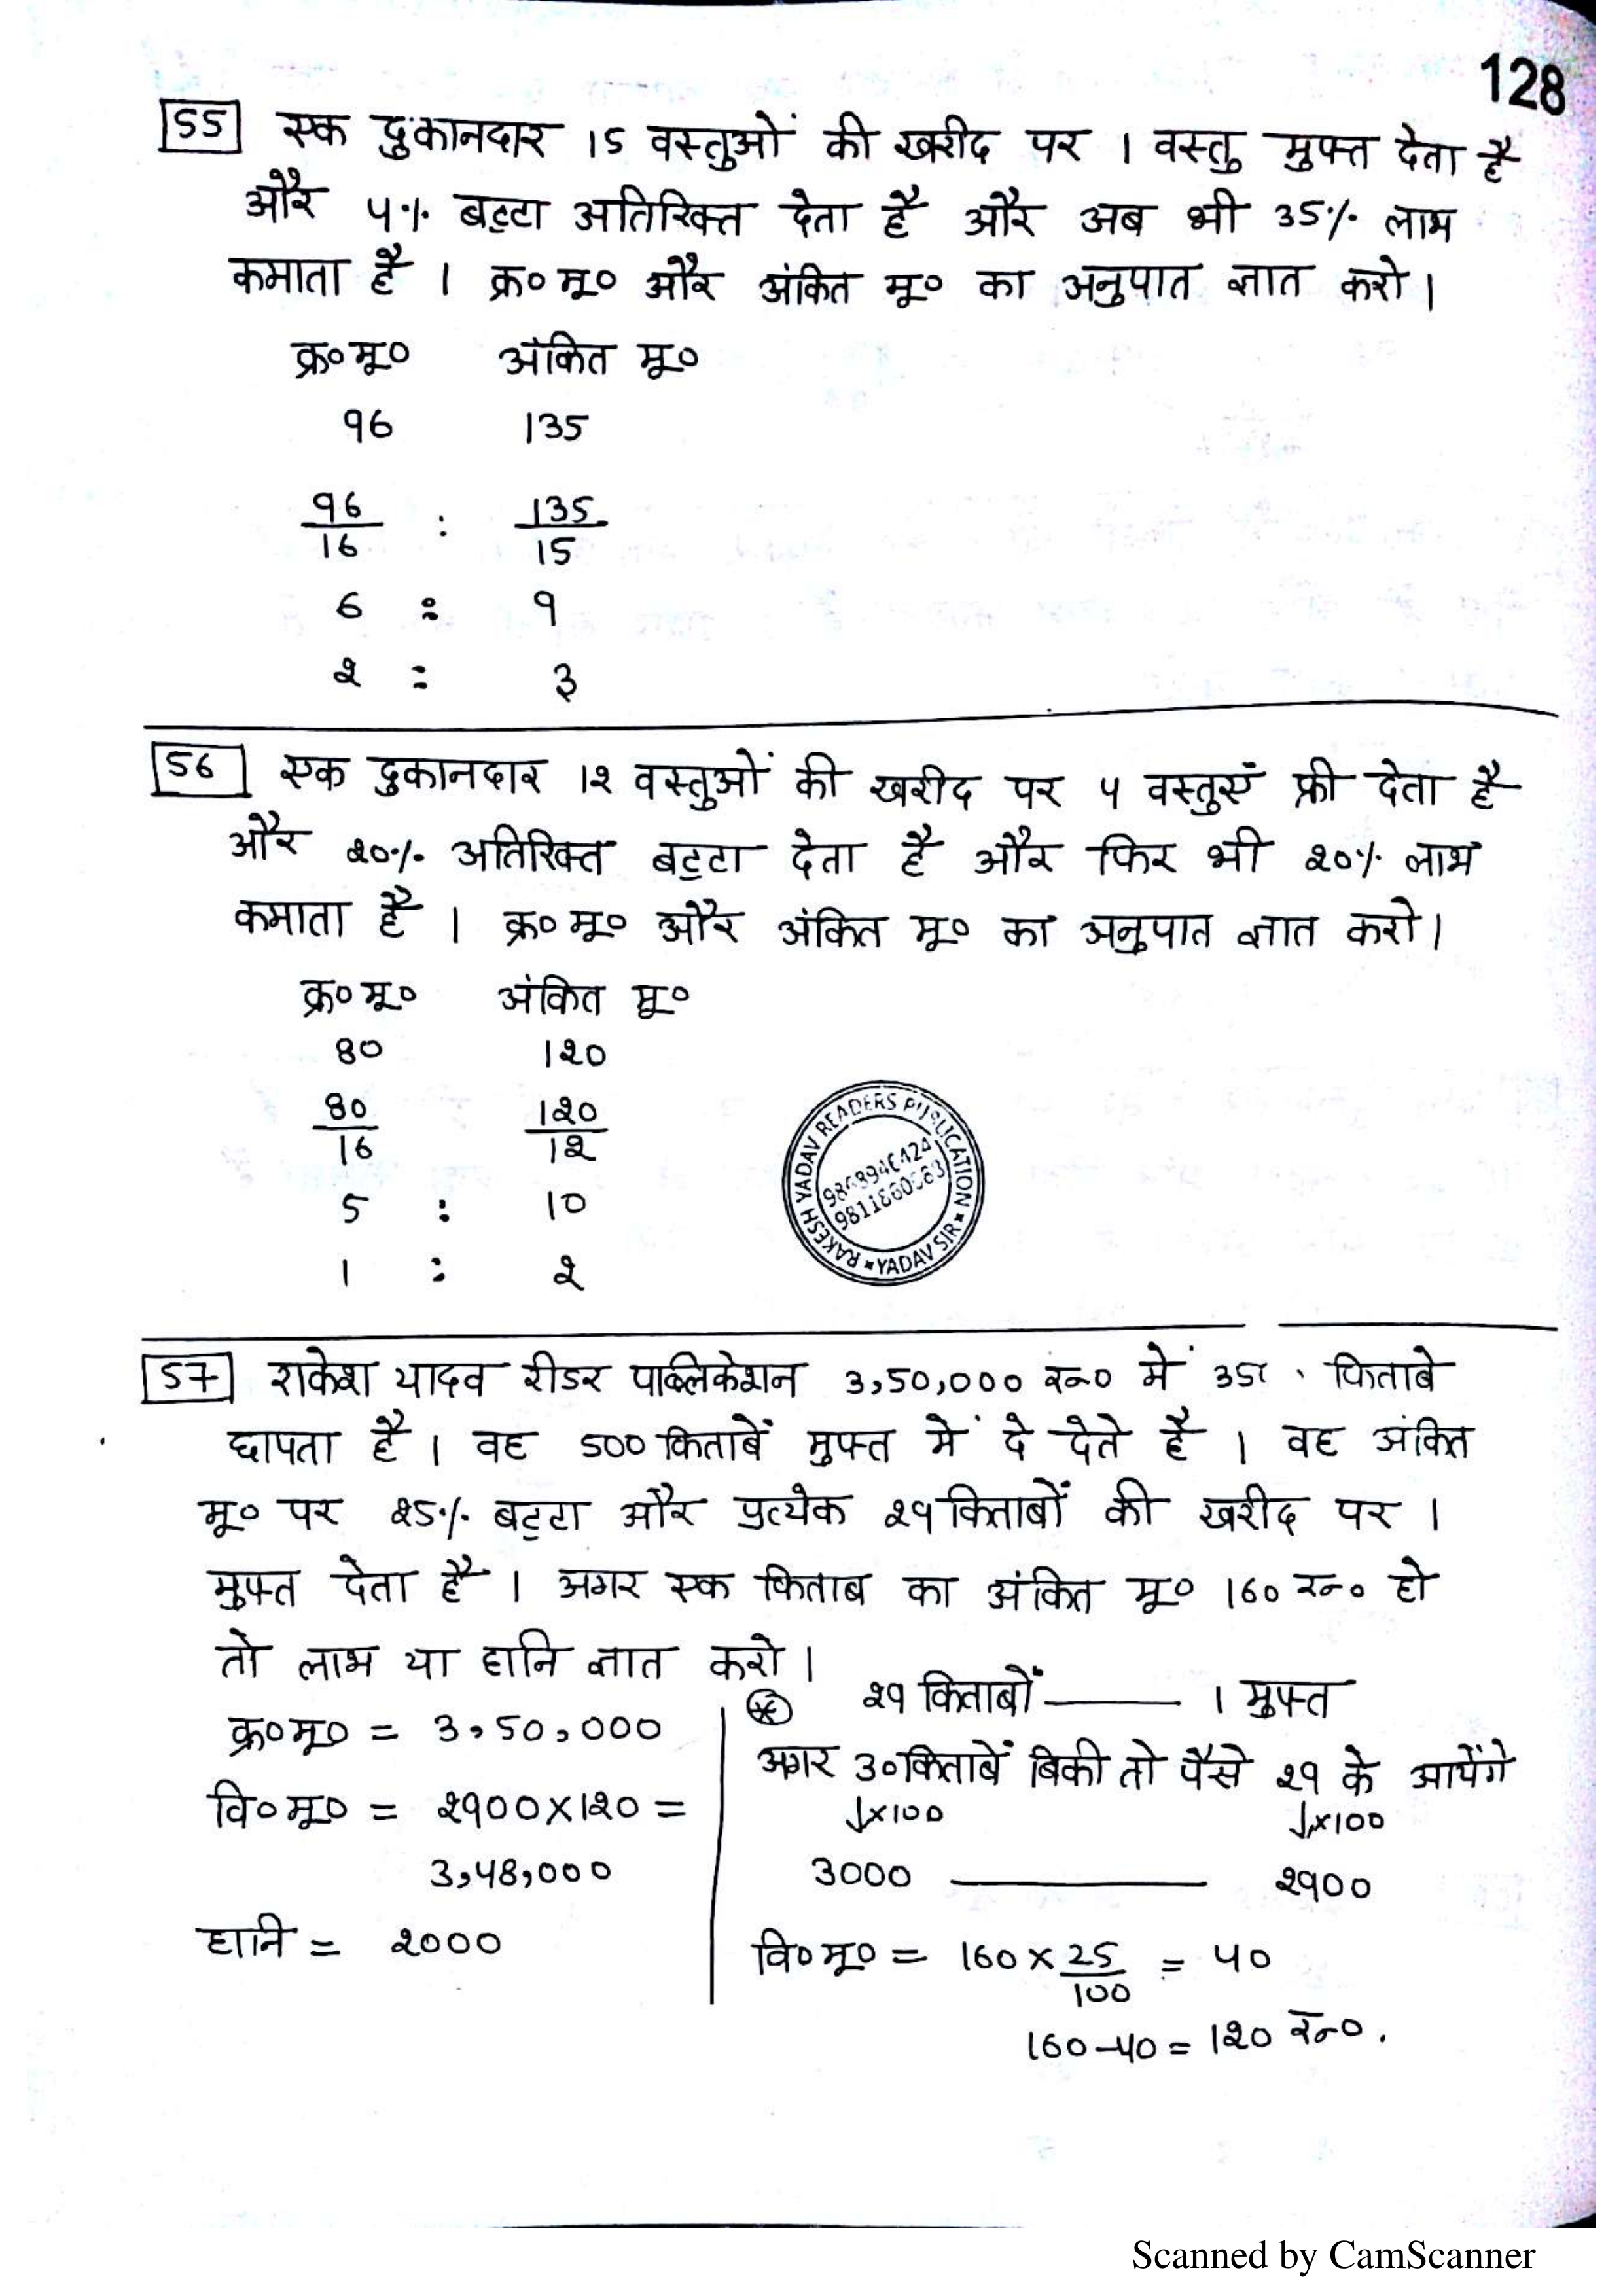 128
55 एक दुकानदार 15 वस्तुओं की खरीद पर 1 वस्तु मुफ्त देता है
और 4% बट्टा अतिरिक्त देता है और अब भी 35% लाभ
कमाता है । क्र०मू० और अंकित मू० का अनुपात ज्ञात करो।
क्र०मू० अंकित मू०
96 135
96/16 : 135/15
6 : 9
2 : 3
56 एक दुकानदार 12 वस्तुओं की खरीद पर 4 वस्तुएँ फ्री देता है
और 20% अतिरिक्त बट्टा देता है और फिर भी 20% लाभ
कमाता है । क्र०मू० और अंकित मू० का अनुपात ज्ञात करो।
क्र०मू० अंकित मू०
80 120
80/16 120/12
5 : 10
1 : 2
RAKESH YADAV READERS PUBLICATION * YADAV SIR *
57 राकेश यादव रीडर पाब्लिकेशन 3,50,000 रू० में किताबे
छापता है । वह 500 किताबें मुफ्त में दे देते है । वह अंकित
मू० पर 25% बट्टा और प्रत्येक 29 किताबों की खरीद पर 1
मुफ्त देता है । अगर एक किताब का अंकित मू० 160 रू० हो
तो लाभ या हानि ज्ञात करो।
क्र०मू० = 3,50,000
वि०मू० = 2900×120 =
3,48,000
हानि = 2000
29 किताबों —— 1 मुफ्त
अगर 30 किताबें बिकी तो पैसे 29 के आयेंगे
↓×100 ↓×100
3000 —— 2900
वि०मू० = 160 × 25/100 = 40
160-40 = 120 रू०.
Scanned by CamScanner